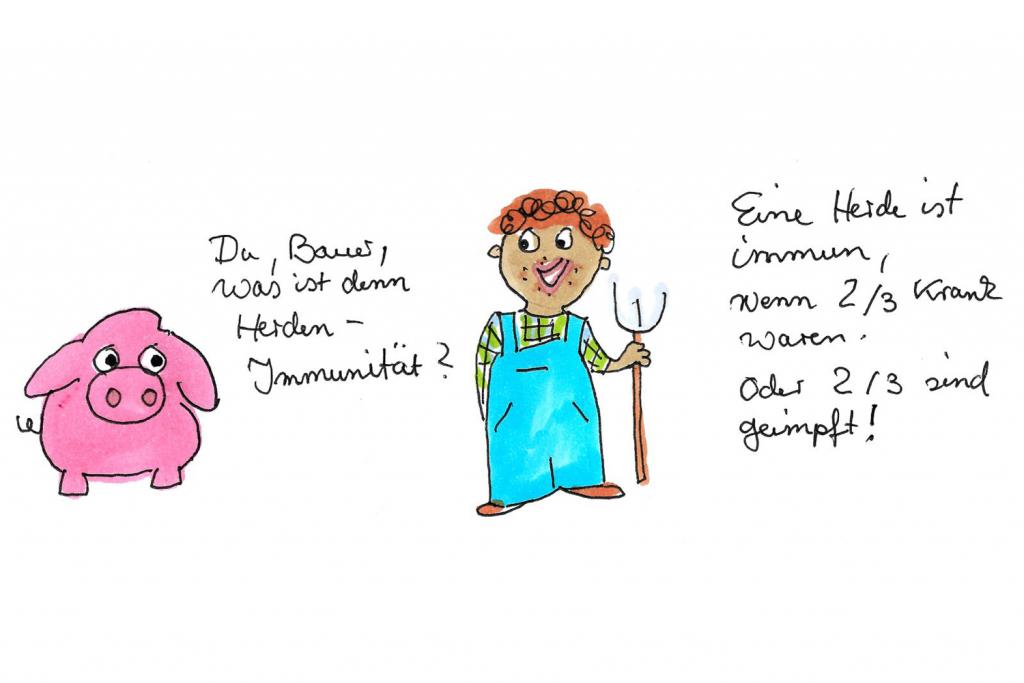 Du, Bauer,
was ist denn
Herden-
Immunität?
Eine Herde ist
immun,
wenn 2/3 krank
waren.
Oder 2/3 sind
geimpft!